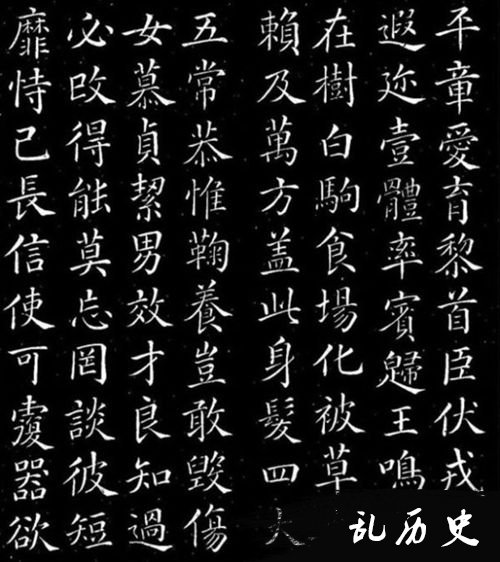 平章愛育黎首臣伏戎
遐迩壹體率賓歸王鳴
在樹白駒食場化被草
賴及萬方盖此身髮四大
五常恭惟鞠養豈敢毀傷
女慕貞絜男效才良知過
必改得能莫忘罔談彼短
靡恃己長信使可覆器欲
乱历史